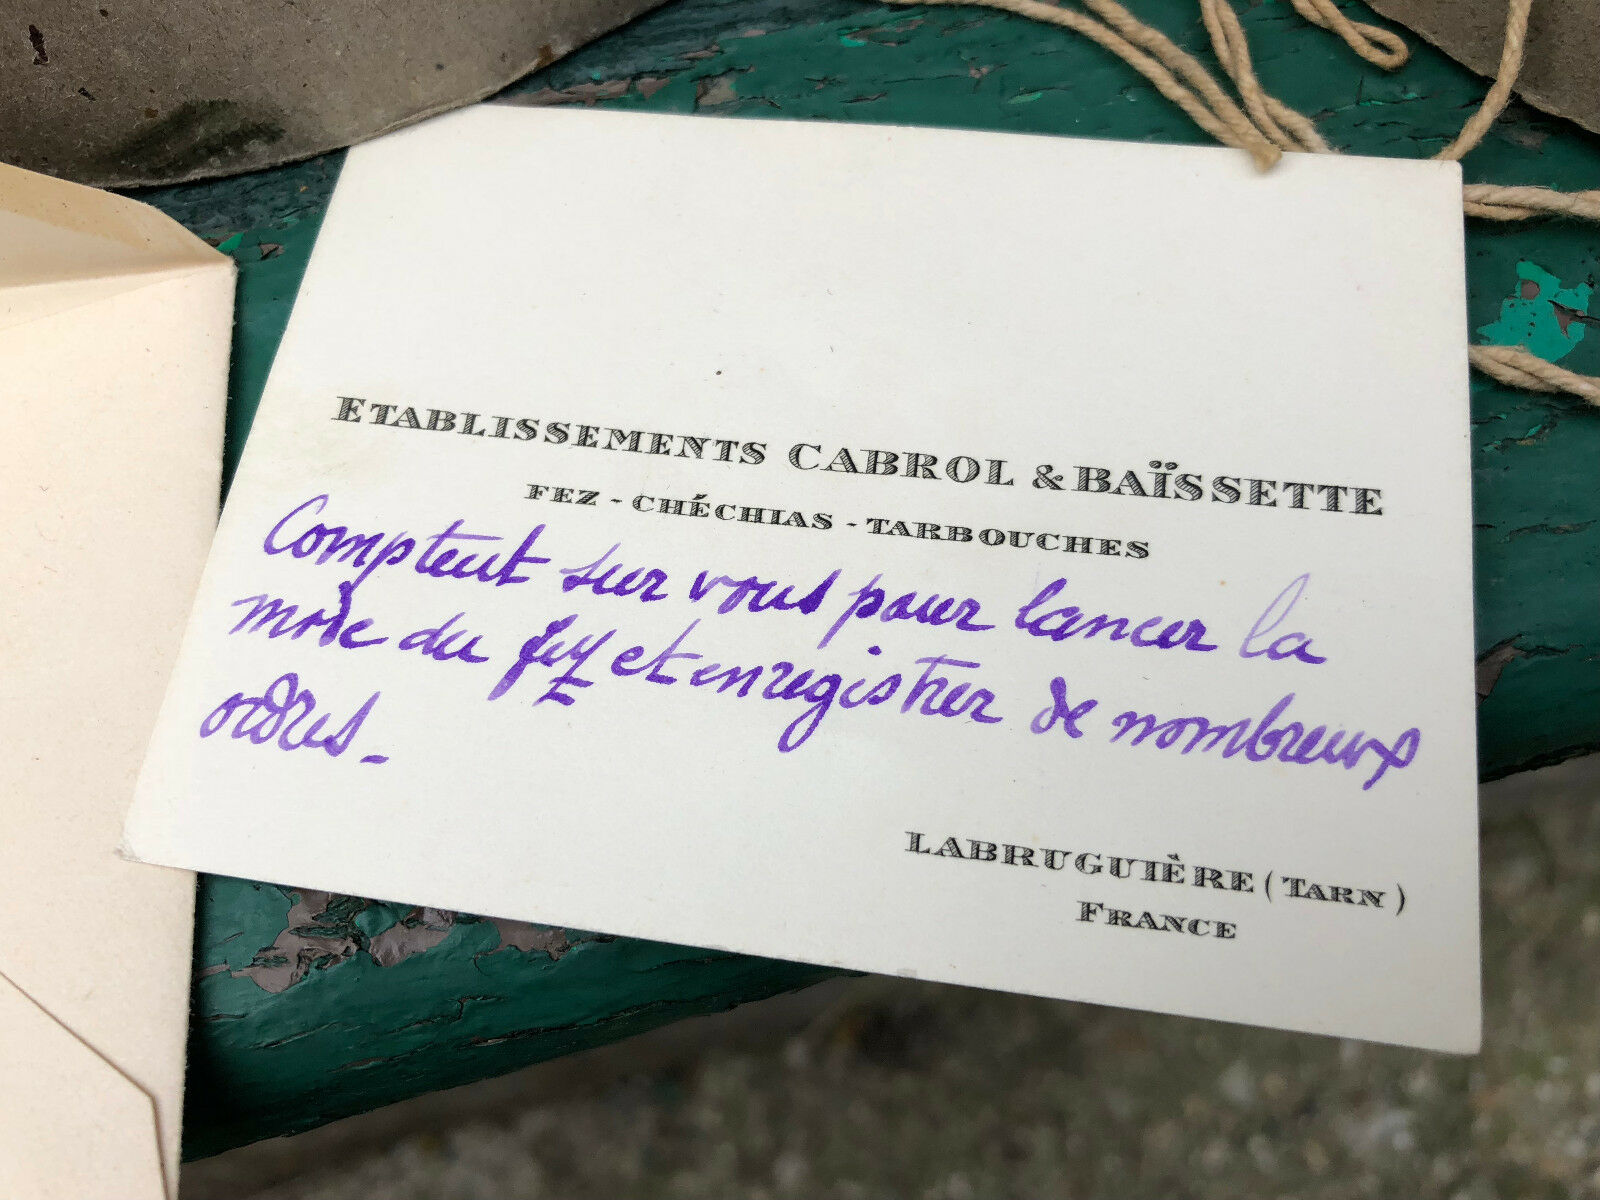 ETABLISSEMENTS CABROL & BAÏSSETTE
FEZ - CHÉCHIAS - TARBOUCHES
Comptent sur vous pour lancer la
mode du fez et enregistrer de nombreux
ordres.-
LABRUGUIÈRE (TARN)
FRANCE